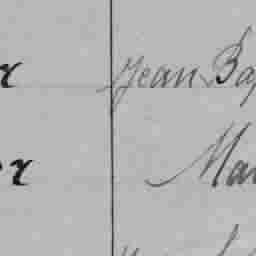 r Jean Bap
er Mar